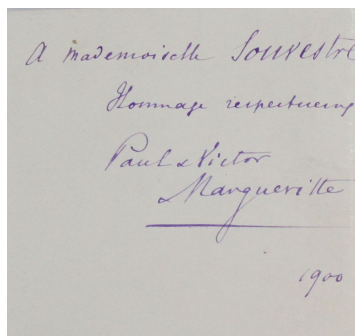 A mademoiselle Souvestre
Hommage respectueux
Paul & Victor
Margueritte
1900